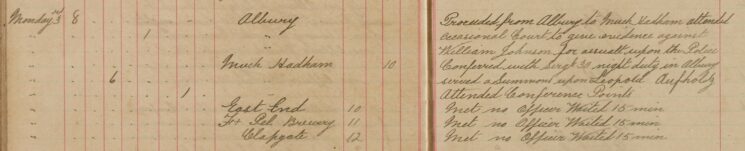 Monday 3rd 8 " Albury Proceeded from Albury to Much Hadham attended
" " 1 " occasional Court to give evidence against
" " " " William Johnson for assault upon the Police
" " " Much Hadham 10 Conferred with Sergt 30 night duty in Albury
" 6 " served a Summons upon Leopold Aufholtz
" " 1 Attended Conference Points
" " " East End 10 Met no Officer Waited 15 min
" " " Fx Pel. Brewery 11 Met no Officer Waited 15 min
" " " Clapgate 12 Met no Officer Waited 15 min